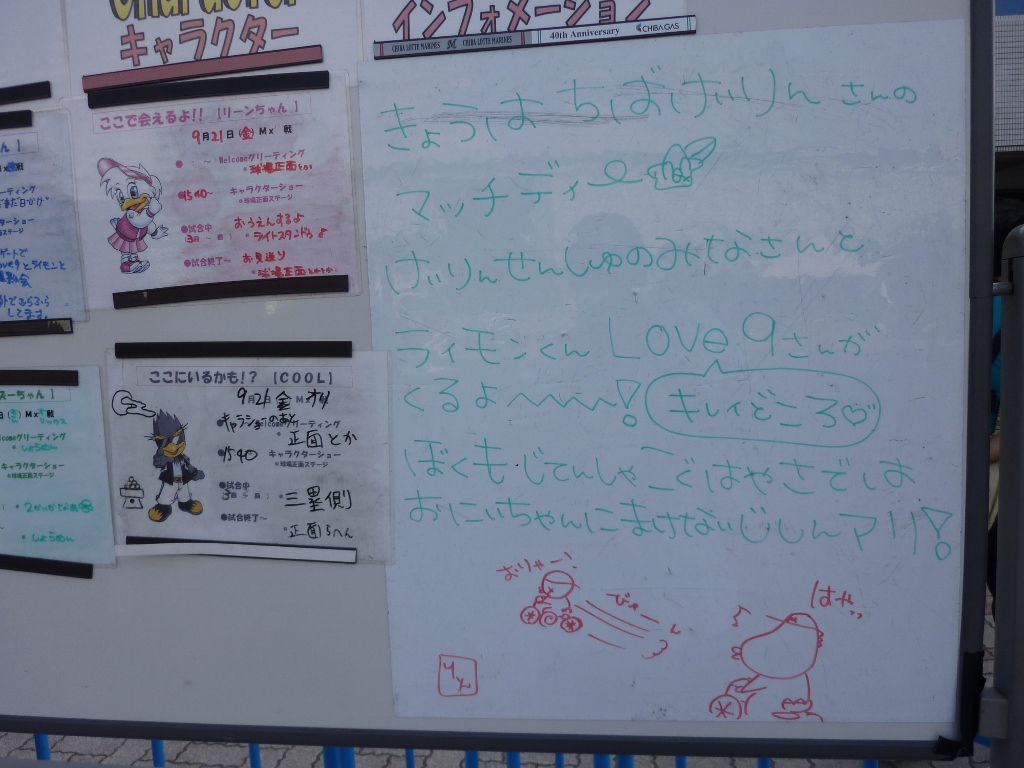 Character
キャラクター
インフォメーション
CHIBA LOTTE MARINES M CHIBA LOTTE MARINES 40th Anniversary CHIBA GAS
ここで会えるよ!! 【リーンちゃん】
9月21日(金) Mx 戦
Welcomeグリーティング
球場正面とか
1540~ キャラクターショー
*球場正面ステージ
●試合中 おうえんするよ
3回 ~ 回 ライトスタンド
●試合終了~ お見送り
球場正面
ここにいるかも!? 【COOL】
9月21金 M オリ
キャラショーのあと
Welcomeグリーティング
正面とか
1540 キャラクターショー
*球場正面ステージ
●試合中
3回 ~ 回 三塁側
●試合終了~
正面らへん
スーちゃん】
Mx 戦
グリーティング
しょうめん
キャラクターショー
球場正面ステージ
しょうめん
きょうは ちばけいりん さんの
マッチデー
けいりんせんしゅのみなさんと
ライモンくん LOVE9さんが
くるよ~~~!
キレイどころ♡
ぼくもじてんしゃこぐはやさでは
おにいちゃんにまけないじしんアリ!
おりゃー
ぴゅー
はや